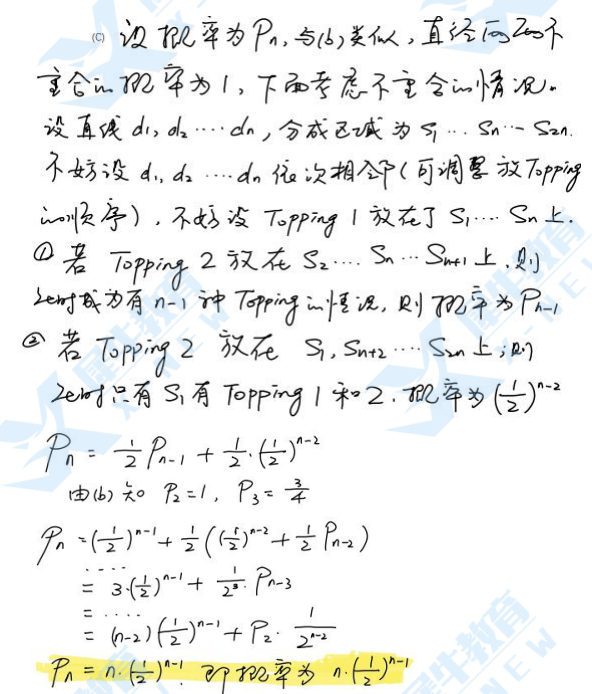 (C) 设概率为Pn,与(b)类似,直径间Zeb不
重合的概率为1,下面考虑不重合的情况。
设直线 d₁, d₂ ⋯⋯ dn,分成区域为 S₁ ⋯ Sn ⋯ S2n.
不妨设 d₁, d₂ ⋯⋯ dn 依次相邻(可调整放Topping
的顺序),不妨设 Topping 1 放在了 S₁ ⋯⋯ Sn 上.
① 若 Topping 2 放在 S₂ ⋯⋯ Sn ⋯ Sn+1 上,则
Zeb时成为有 n-1 种 Topping的情况,则概率为 Pn-1
② 若 Topping 2 放在 S₁, Sn+2 ⋯⋯ S2n 上,则
Zeb时只有 S₁ 有 Topping 1 和 2. 概率为 (1/2)^(n-2)
Pn = 1/2 Pn-1 + 1/2 · (1/2)^(n-2)
由(b)知 P₂ = 1, P₃ = 3/4
Pn = (1/2)^(n-1) + 1/2 ((1/2)^(n-2) + 1/2 Pn-2)
⋯⋯
= 3·(1/2)^(n-1) + 1/2³ · Pn-3
= ⋯⋯
= (n-2)(1/2)^(n-1) + P₂ · 1/2^(n-2)
Pn = n·(1/2)^(n-1). 即概率为 n·(1/2)^(n-1)
犀牛教育
X-NEW